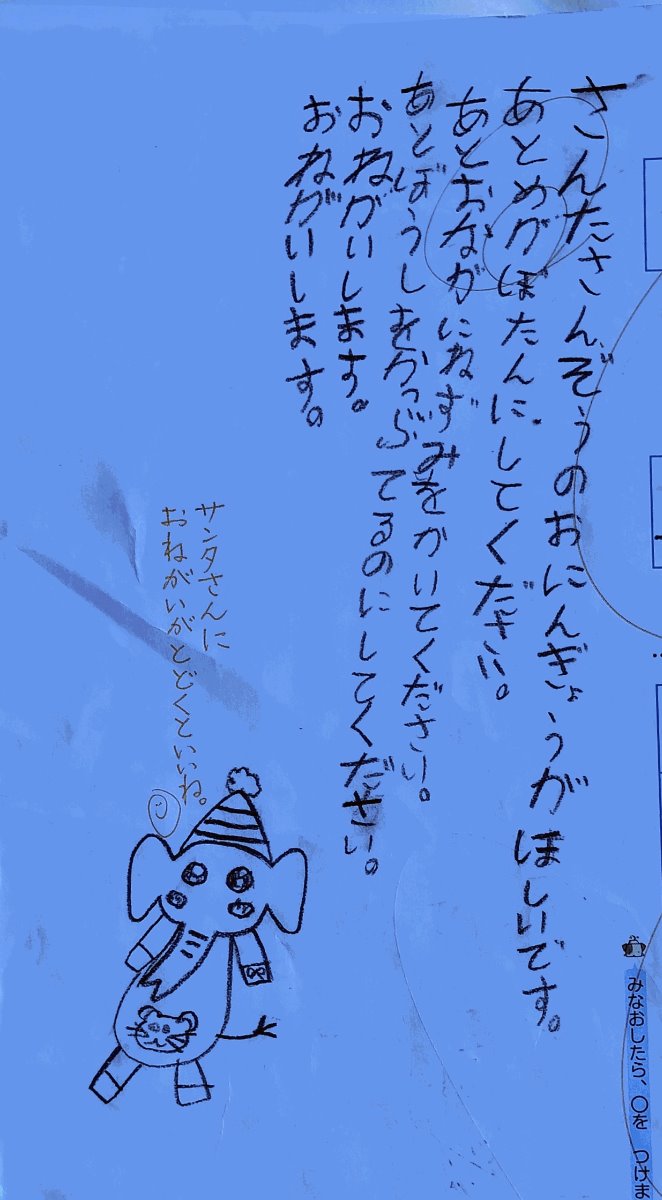 さんたさんぞうのおにんぎょうがほしいです。
あとめがぼたんにしてください。
あとおなかにねずみをかいてください。
あとぼうしをかっぶてるのにしてください。
おねがいします。
おねがいします。
サンタさんに
おねがいがとどくといいね。
みなおしたら、○を つけま